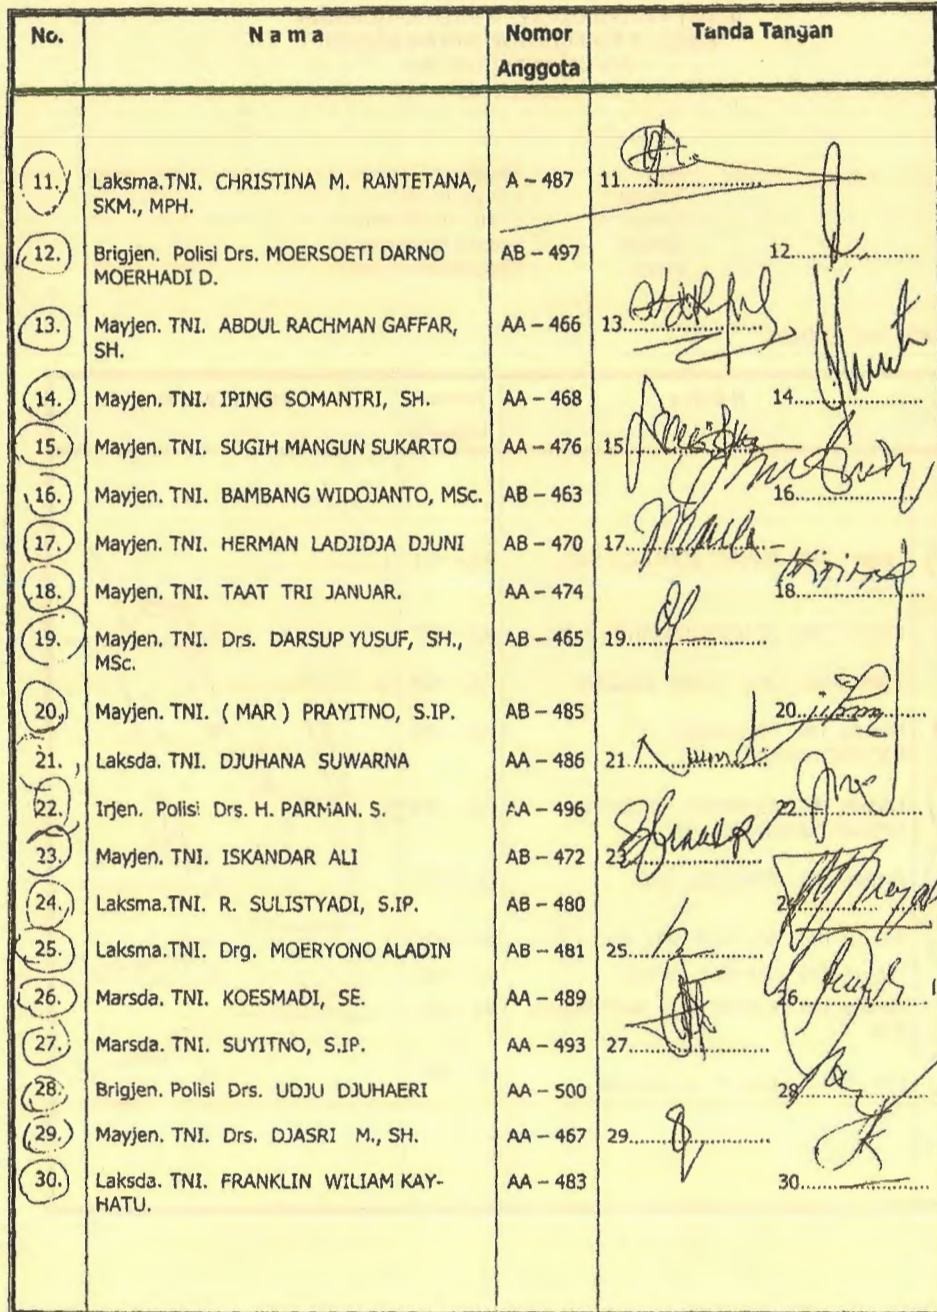 No. N a m a Nomor Anggota Tanda Tangan
11. Laksma.TNI. CHRISTINA M. RANTETANA, A – 487 11........................
SKM., MPH.
12. Brigjen. Polisi Drs. MOERSOETI DARNO AB – 497 12........................
MOERHADI D.
13. Mayjen. TNI. ABDUL RACHMAN GAFFAR, AA – 466 13........................
SH.
14. Mayjen. TNI. IPING SOMANTRI, SH. AA – 468 14........................
15. Mayjen. TNI. SUGIH MANGUN SUKARTO AA – 476 15........................
16. Mayjen. TNI. BAMBANG WIDOJANTO, MSc. AB – 463 16........................
17. Mayjen. TNI. HERMAN LADJIDJA DJUNI AB – 470 17........................
18. Mayjen. TNI. TAAT TRI JANUAR. AA – 474 18........................
19. Mayjen. TNI. Drs. DARSUP YUSUF, SH., AB – 465 19........................
MSc.
20. Mayjen. TNI. ( MAR ) PRAYITNO, S.IP. AB – 485 20........................
21. Laksda. TNI. DJUHANA SUWARNA AA – 486 21........................
22. Irjen. Polisi Drs. H. PARMAN. S. AA – 496 22........................
23. Mayjen. TNI. ISKANDAR ALI AB – 472 23........................
24. Laksma.TNI. R. SULISTYADI, S.IP. AB – 480 24........................
25. Laksma.TNI. Drg. MOERYONO ALADIN AB – 481 25........................
26. Marsda. TNI. KOESMADI, SE. AA – 489 26........................
27. Marsda. TNI. SUYITNO, S.IP. AA – 493 27........................
28. Brigjen. Polisi Drs. UDJU DJUHAERI AA – 500 28........................
29. Mayjen. TNI. Drs. DJASRI M., SH. AA – 467 29........................
30. Laksda. TNI. FRANKLIN WILIAM KAY- AA – 483 30........................
HATU.